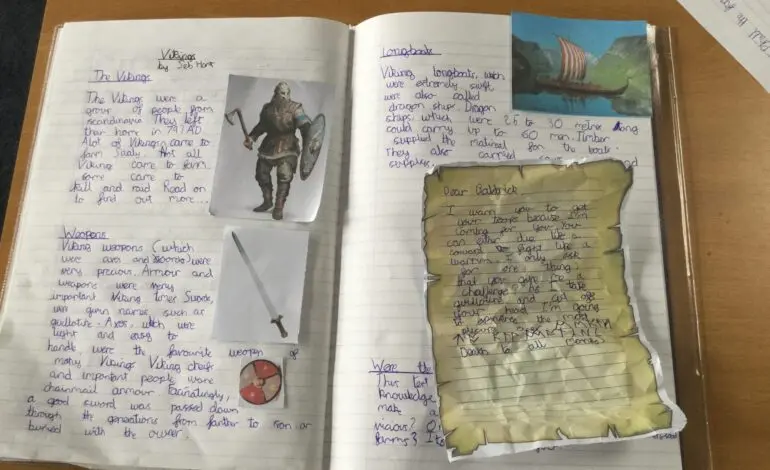 Vikings
by Seb Hart
The Vikings
The Vikings were a
group of people from
scandinavia They left
their home in 797 AD
Alot of Vikings came to
farm Sealy. Not all
Viking came to farm
some came to
kill and raid Read on
to find out more...
Weapons
Viking weapons (which
were axes and swords) were
very precious. Armour and
weapons were very
important Viking times Swords,
were given names, such as
guillotine. Axes, which were
light and easy to
handle were the favourite weapon of
many Vikings Viking chiefs
and important people wore
chainmail armour. Fascinatingly,
a good sword was passed down
through the generations from farther to son or
buried with the owner.
Longboats
Viking longboats, which
were extremely swift
were also called
dragon ships. Dragon
ships which were 26 to 30 metres long
could carry up to 60 men. Timber
supplied the matireal for the boats.
They also carried
supplies
Dear
I warn you to get
your troops because I'm
coming for you. You
can either die like a
coward or fight like a
warrior. I only ask
for one thing,
that you give me a
challenge. he I take
guillotine and cut off
your head I'm going
to experience the most
pleasure
Death to all
Were the
This text
knowledge
make a
vicious?
farms? I